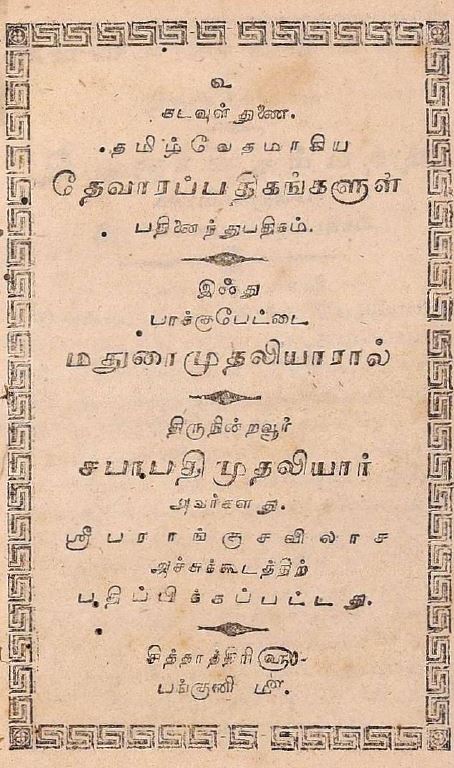 உ
கடவுள் துணை.
தமிழ்வேதமாகிய
தேவாரப்பதிகங்களுள்
பதினைந்துபதிகம்.
இஃது
பாக்குபேட்டை
மதுரைமுதலியாரால்
திருநின்றவூர்
சபாபதிமுதலியார்
அவர்களது.
ஸ்ரீபராங்குசவிலாச
அச்சுக்கூடத்திற்
பதிப்பிக்கப்பட்டது.
சித்தாத்திரி௵-
பங்குனி ௴.